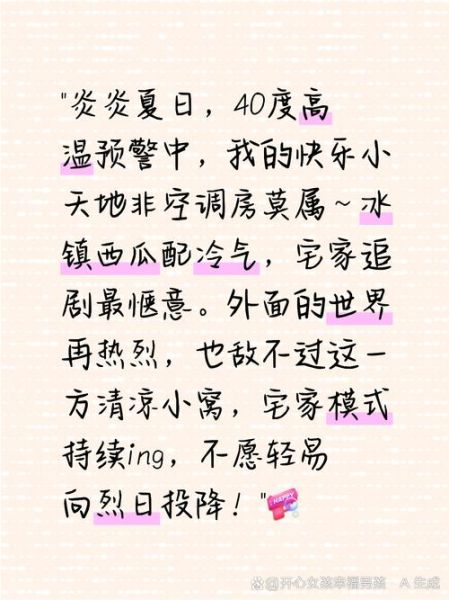 "炎炎夏日，40度高
温预警中，我的快乐小
天地非空调房莫属～冰
镇西瓜配冷气，宅家追
剧最惬意。外面的世界
再热烈，也敌不过这一
方清凉小窝，宅家模式
持续ing，不愿轻易
向烈日投降！"
HAPPY
@开心女孩幸福男孩 · AI 生成